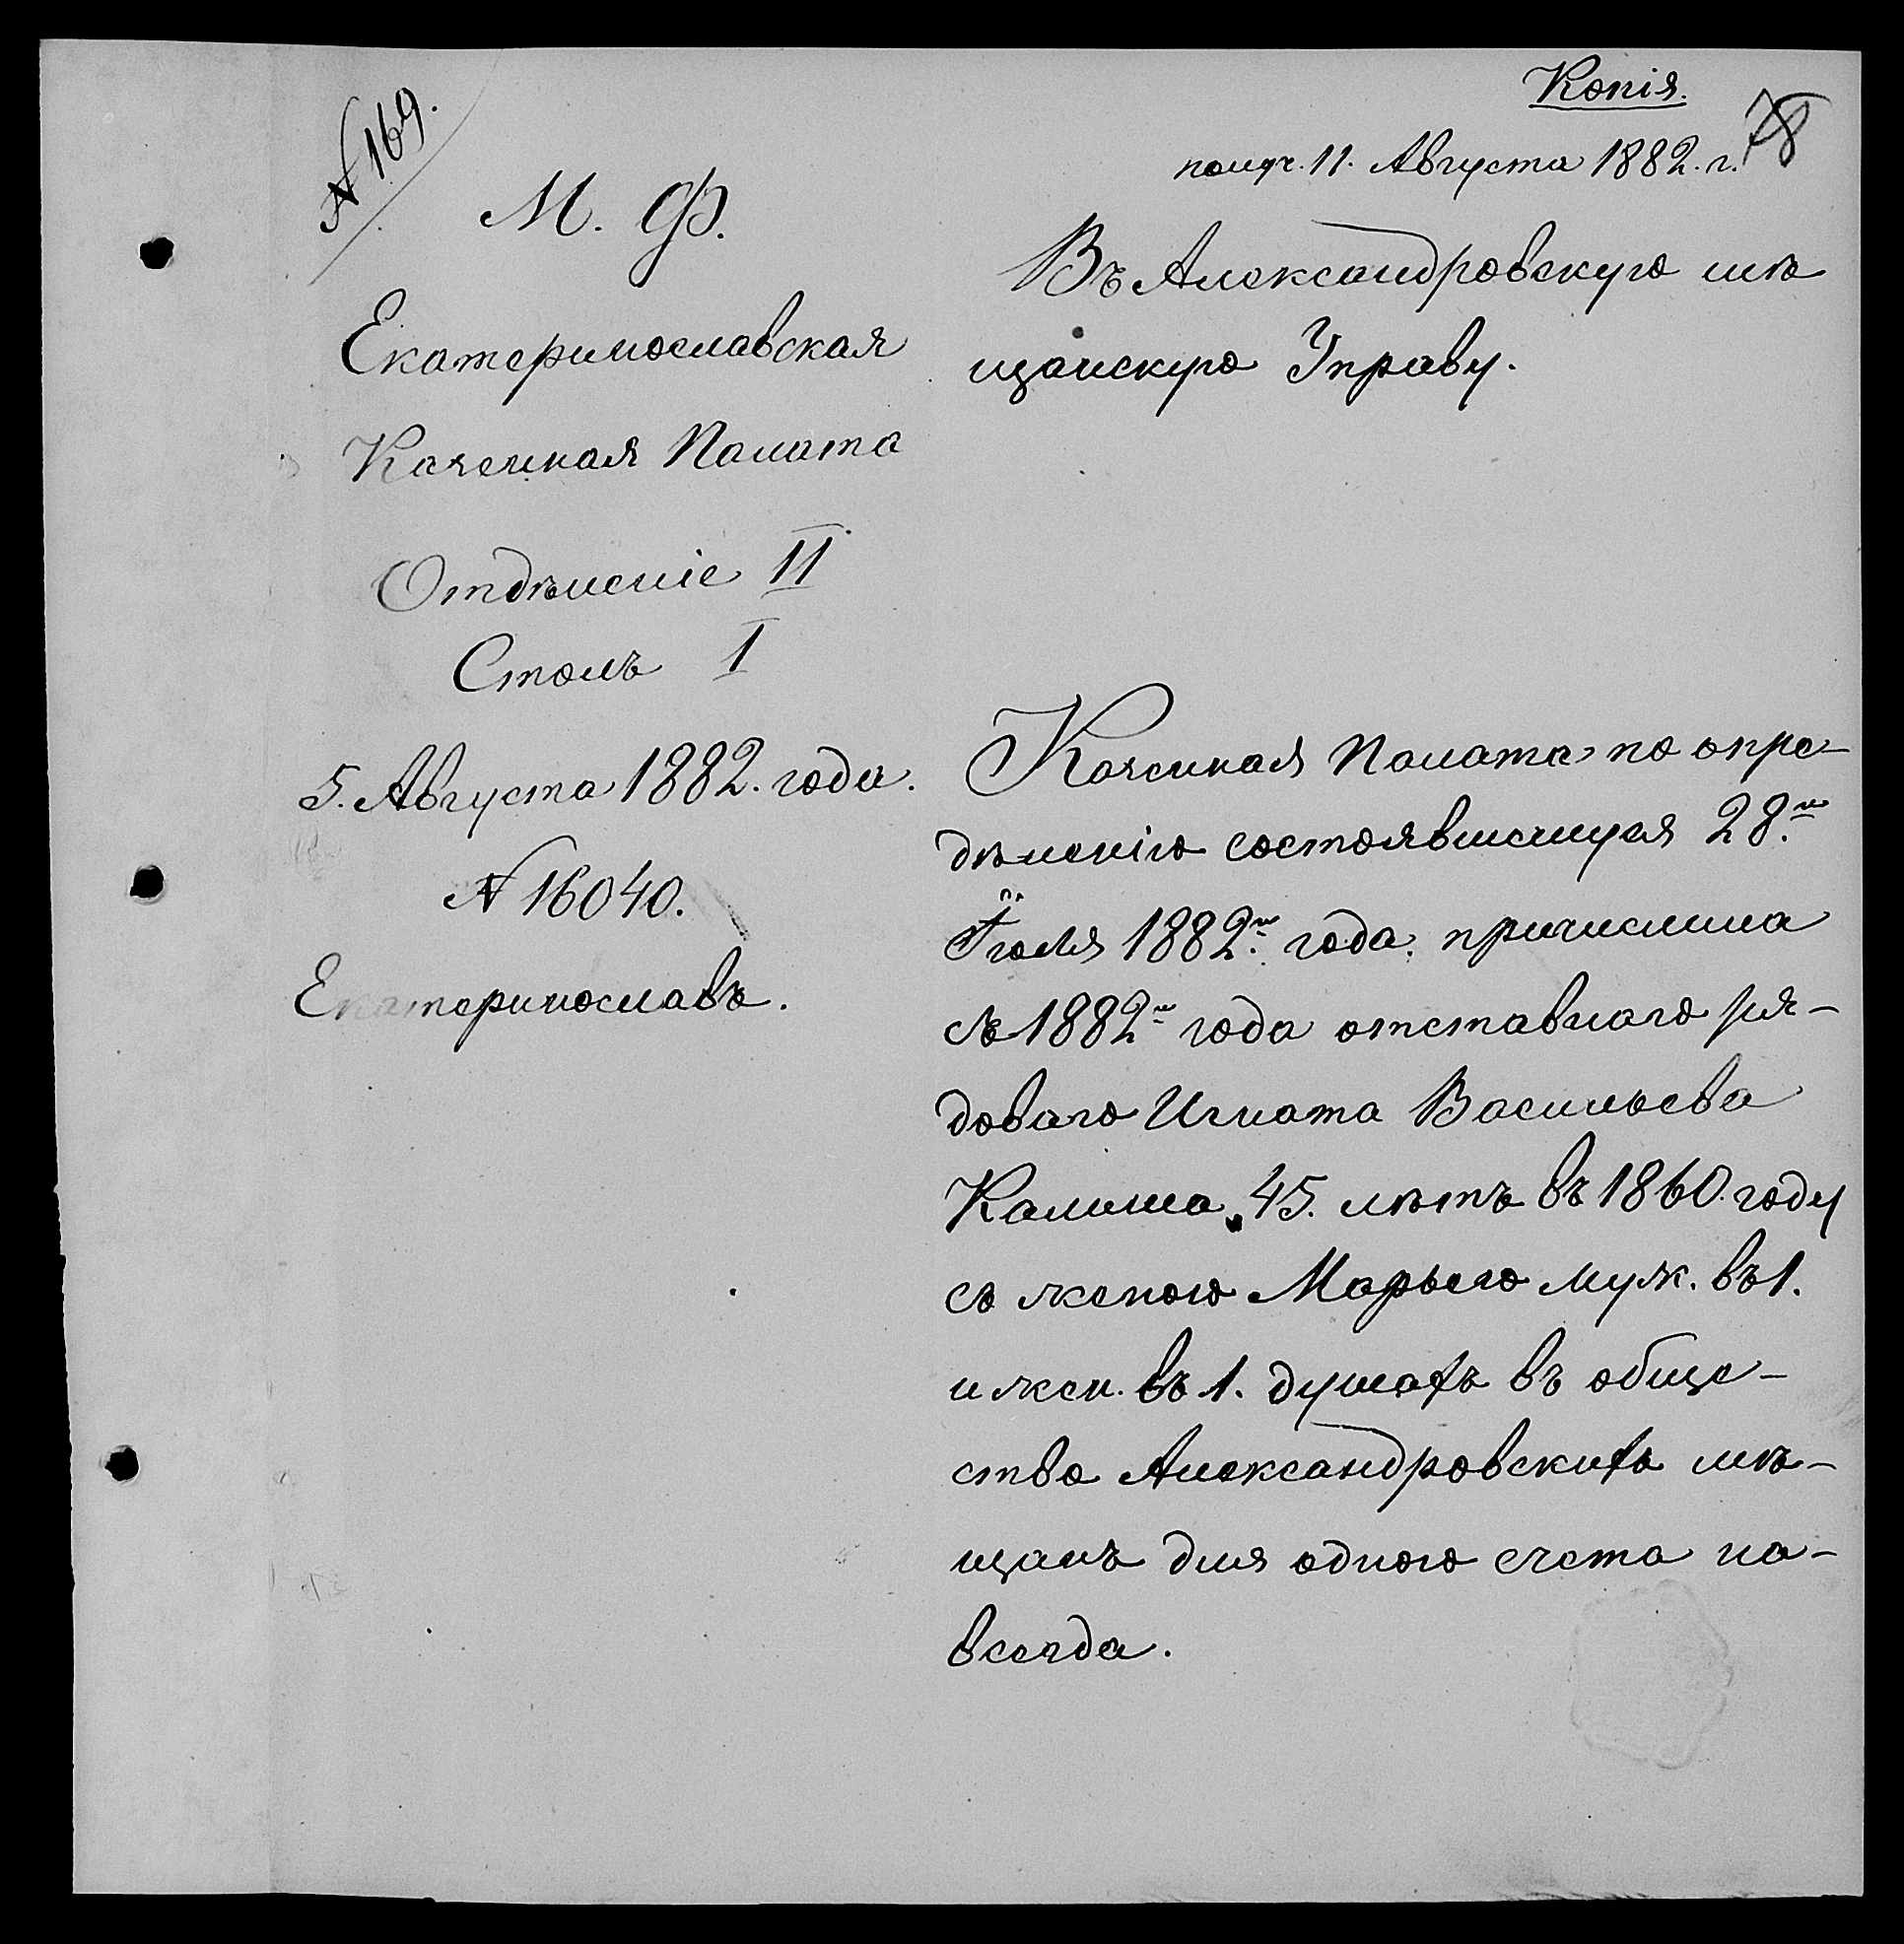 Копія.
78
получ. 11. Августа 1882. г.
№ 169.
М. Ф.
Екатеринославская
Казенная Палата
Отдѣленіе II
Столъ I
5. Августа 1882. года.
№ 16040.
Екатеринославъ.
Въ Александровскую мѣ
щанскую Управу.
Казенная Палата по опре-
дѣленію состоявшемуся 28.го
Іюля 1882.го года. причислила
съ 1882го года отставнаго ря-
доваго Игната Васильева
45. лѣтъ въ 1860. году
съ женою Марьею муж. въ 1.
и жен. въ 1. душахъ въ обще-
ство Александровскихъ мѣ-
щанъ для одного счета на-
всегда.